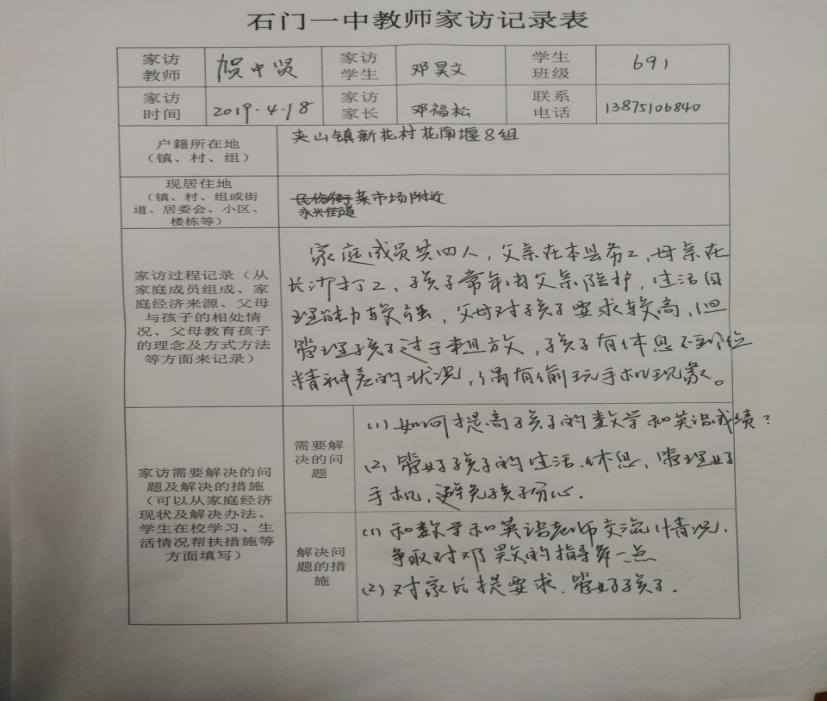 石门一中教师家访记录表
家访教师 贺中贤 家访学生 邓昊文 学生班级 691
家访时间 2019.4.18 家访家长 邓福松 联系电话 13875106840
户籍所在地
（镇、村、组）
夹山镇新花村花南堰8组
现居住地
（镇、村、组或街
道、居委会、小区、
楼栋等）
菜市场附近
永兴街道
家访过程记录（从
家庭成员组成、家
庭经济来源、父母
与孩子的相处情
况、父母教育孩子
的理念及方式方法
等方面来记录）
家庭成员共四人，父亲在本县务工，母亲在
长沙打工，孩子常年由父亲陪护，生活自
理能力较强，父母对孩子要求较高，但
管理孩子过于粗放，孩子有休息不到位
精神差的状况，偶有偷玩手机现象。
家访需要解决的问
题及解决的措施
（可以从家庭经济
现状及解决办法、
学生在校学习、生
活情况帮扶措施等
方面填写）
需要解
决的问
题
(1) 如何提高孩子的数学和英语成绩？
(2) 管好孩子的生活、休息，管理好
手机，避免孩子分心.
解决问
题的措
施
(1) 和数学和英语老师交流情况，
争取对邓昊文的指导多一点
(2) 对家长提要求，管好孩子.